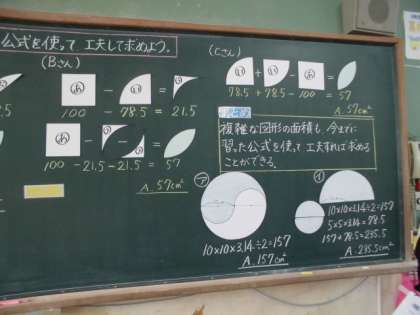 公式を使って工夫して求めよう。
(Bさん)
あ - い = う
100 - 78.5 = 21.5
あ - う う =
100 - 21.5 - 21.5 = 57
A. 57cm²
(Cさん)
い + い - あ =
78.5 + 78.5 - 100 = 57
A. 57cm²
複雑な図形の面積も、今までに
習った公式を使って工夫すれば求める
ことができる。
ア
10×10×3.14÷2=157
A. 157cm²
イ
10×10×3.14÷2=157
5×5×3.14=78.5
157+78.5=235.5
A. 235.5cm²